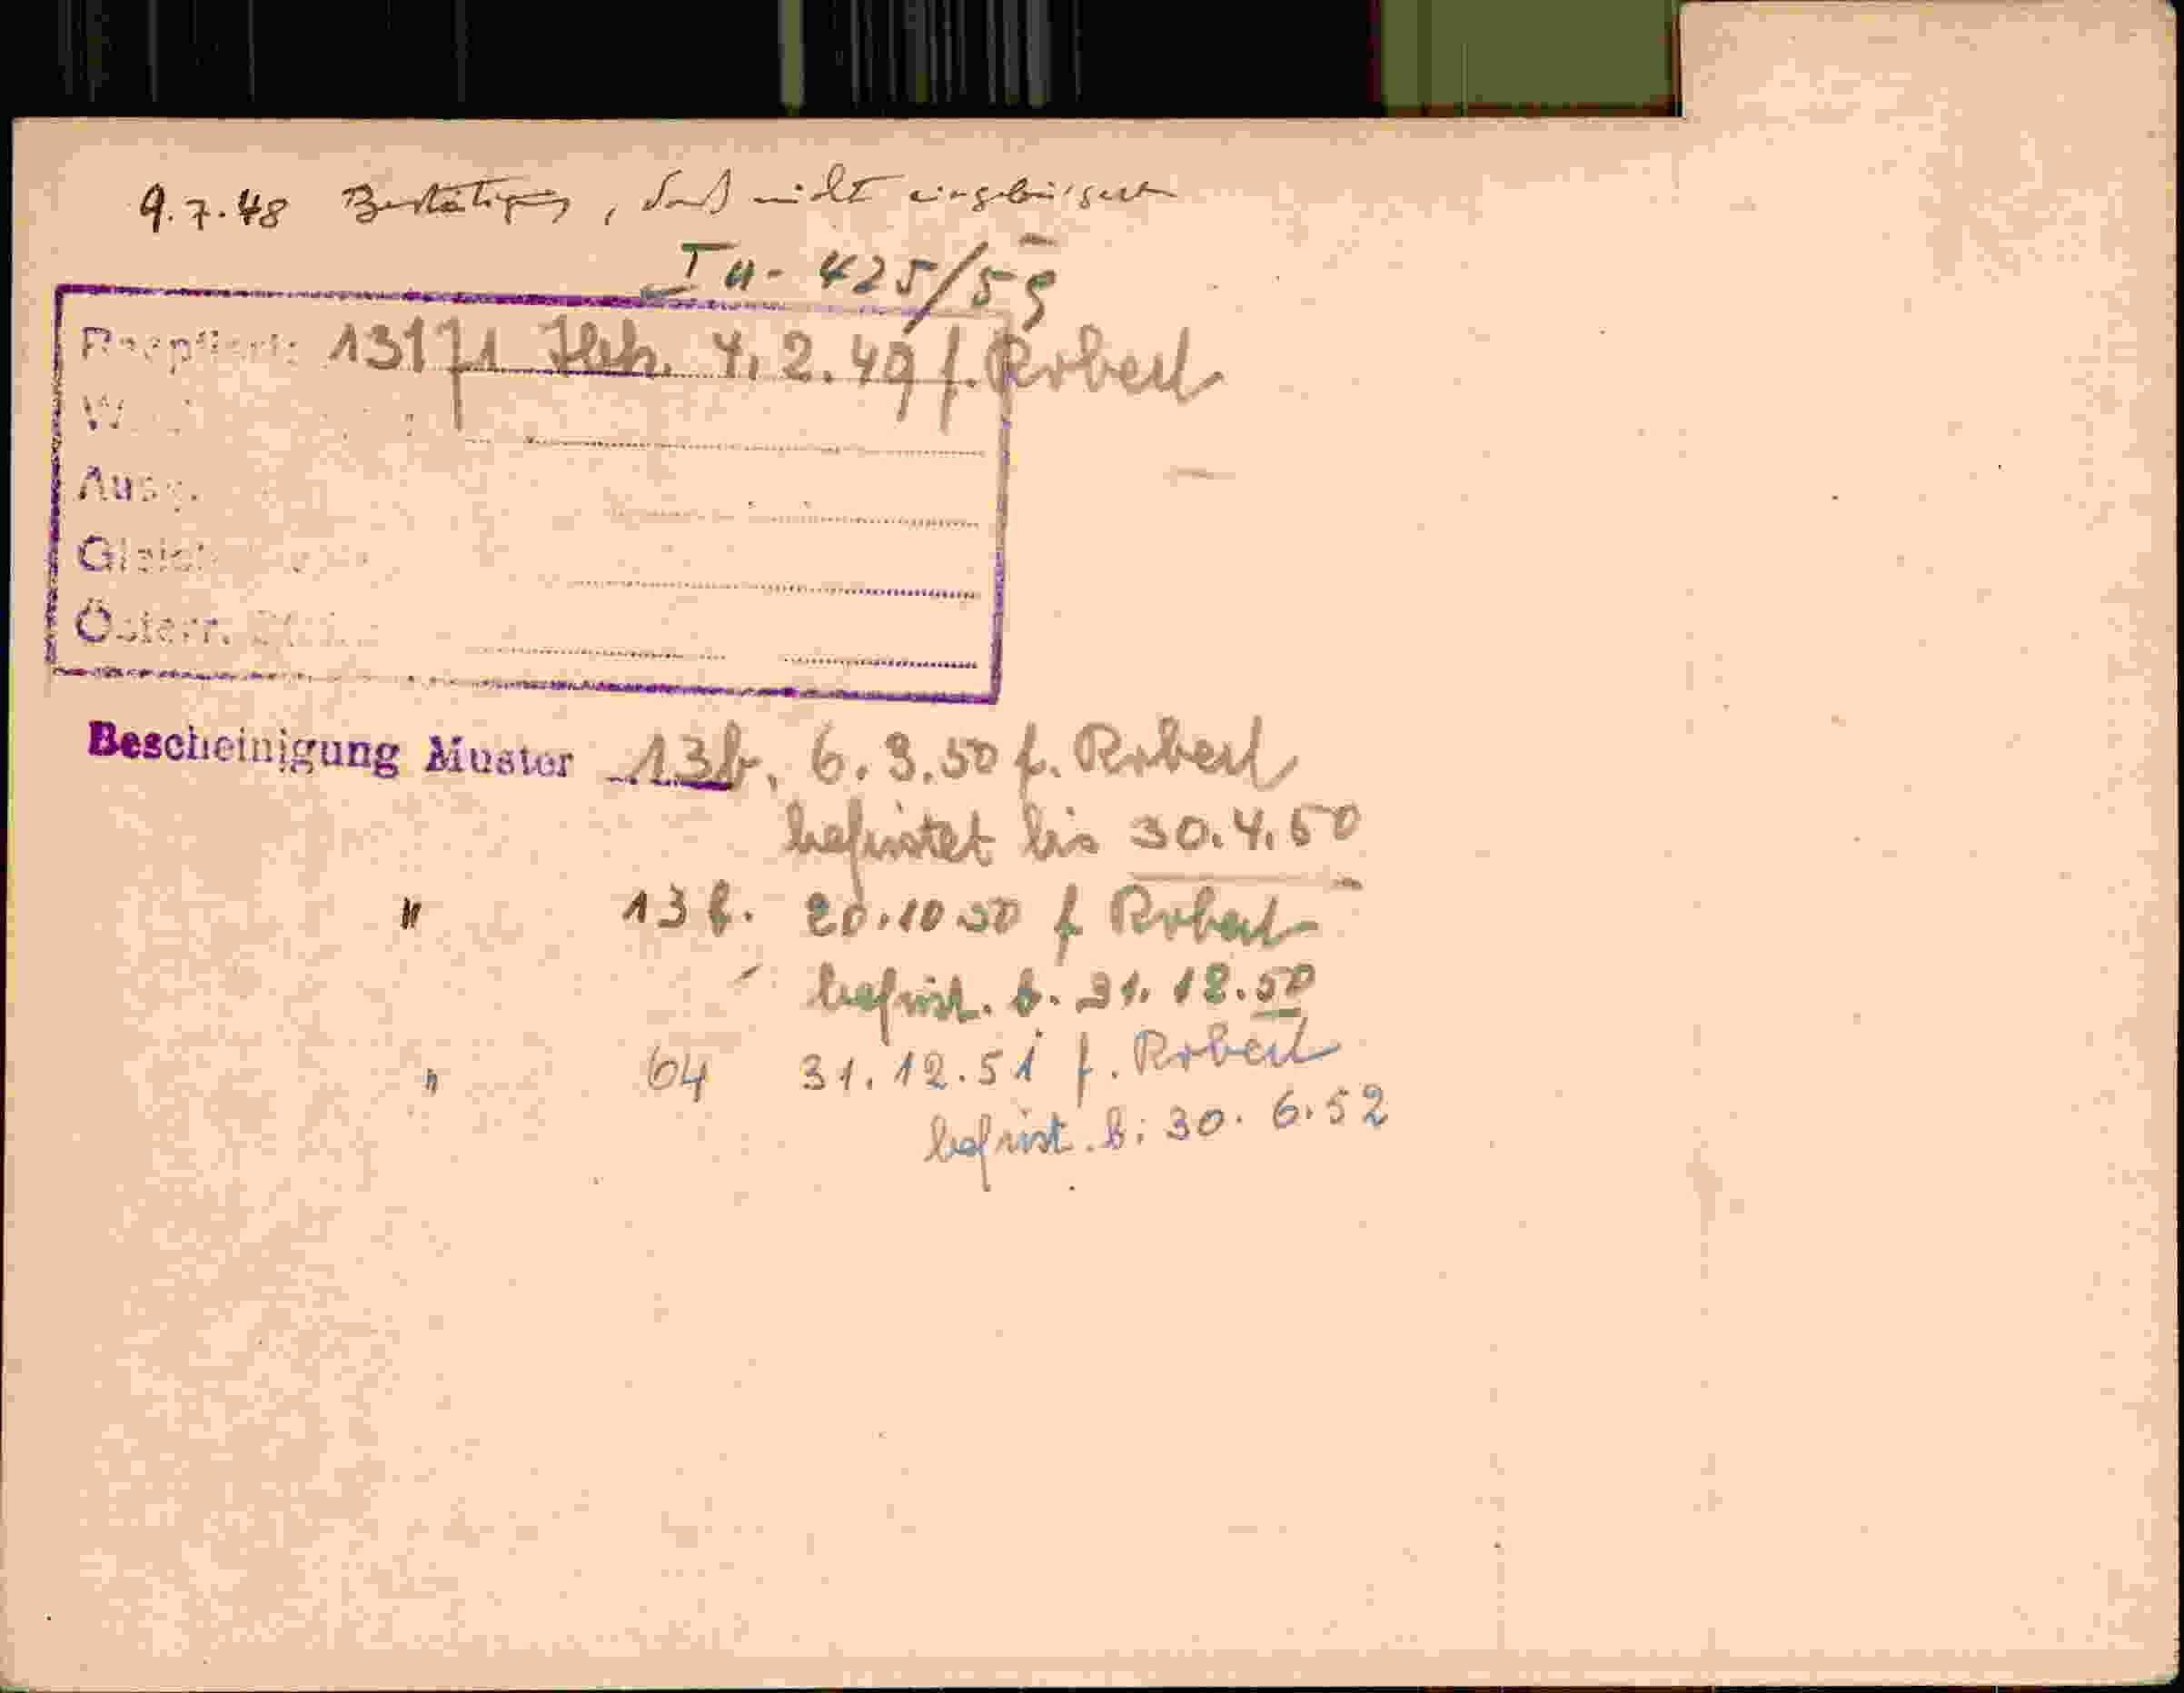 9.7.48 Bestätigung, daß nicht eingebürgert
Ia- 425/59
13171 4.2.49 f. Robert
Ausg.
Gleich
Österr.
Bescheinigung Muster 13b. 6.3.50 f. Robert
befristet bis 30.4.50
" 13b. 20.10.50 f Robert
befrist. b. 31.12.50
" 64 31.12.51 f. Robert
befrist. b. 30.6.52